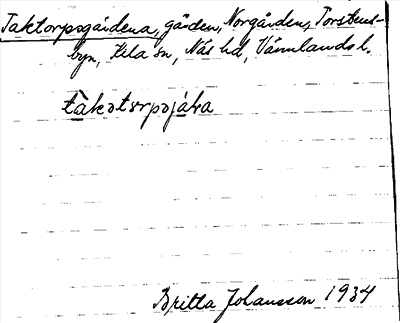 Taktorpsgårdena, gården, Norgården, Torstens-
byn, Kila sn, Näs hd, Värmlands l.
Britta Johansson 1934